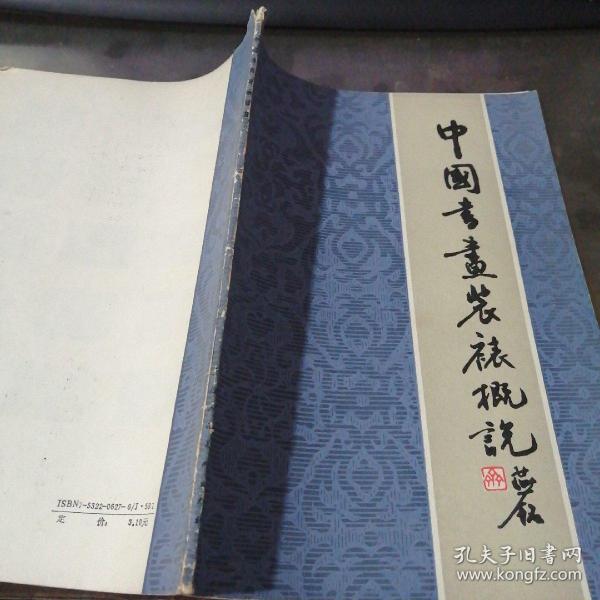 中國書畫裝裱概説
ISBN7-5322-0627-9/J·592
定 价: 3.10元
孔夫子旧书网
www.kongfz.com